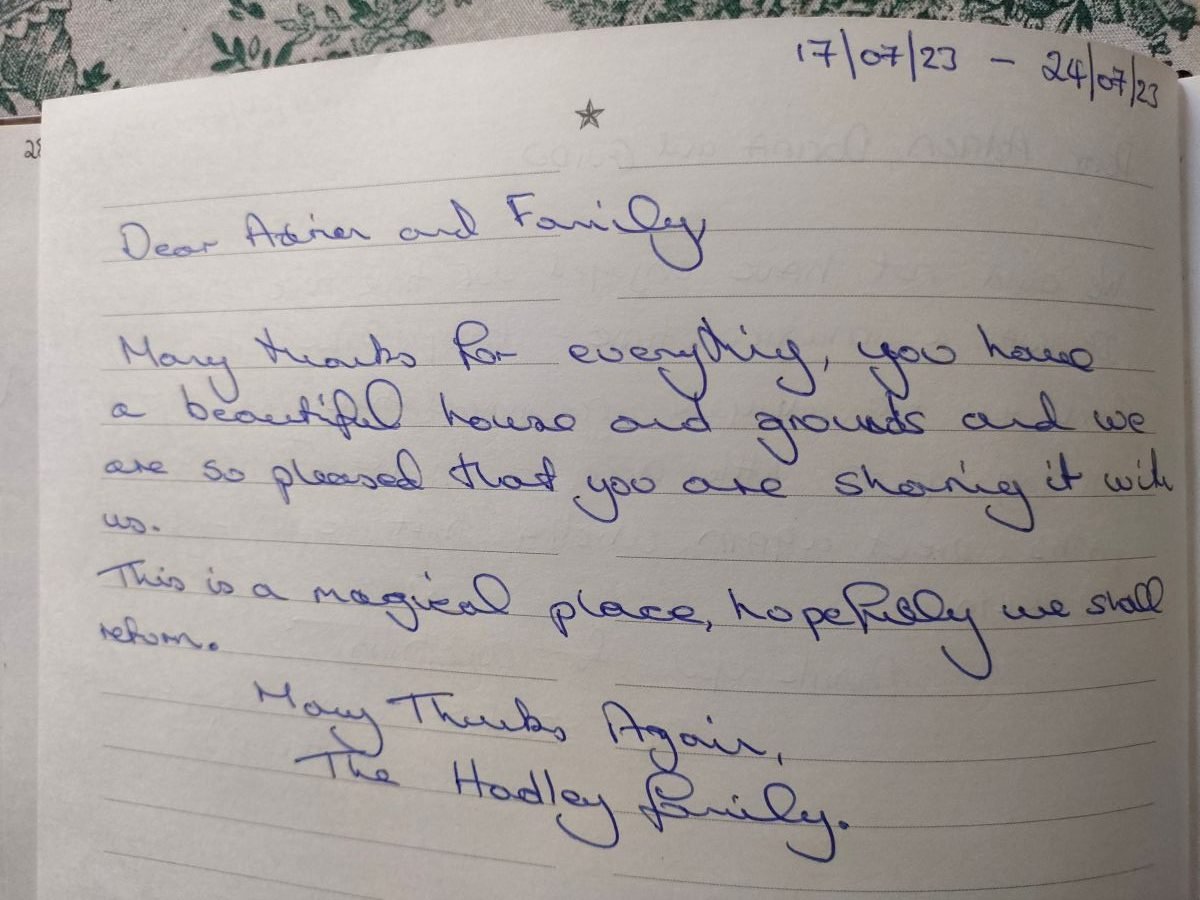 17/07/23 - 24/07/23
Dear and Family,
Many thanks for everything, you have
a beautiful house and grounds and we
are so pleased that you are sharing it with
us.
This is a magical place, hopefully we shall
return.
Many Thanks Again,
The Hadley family.